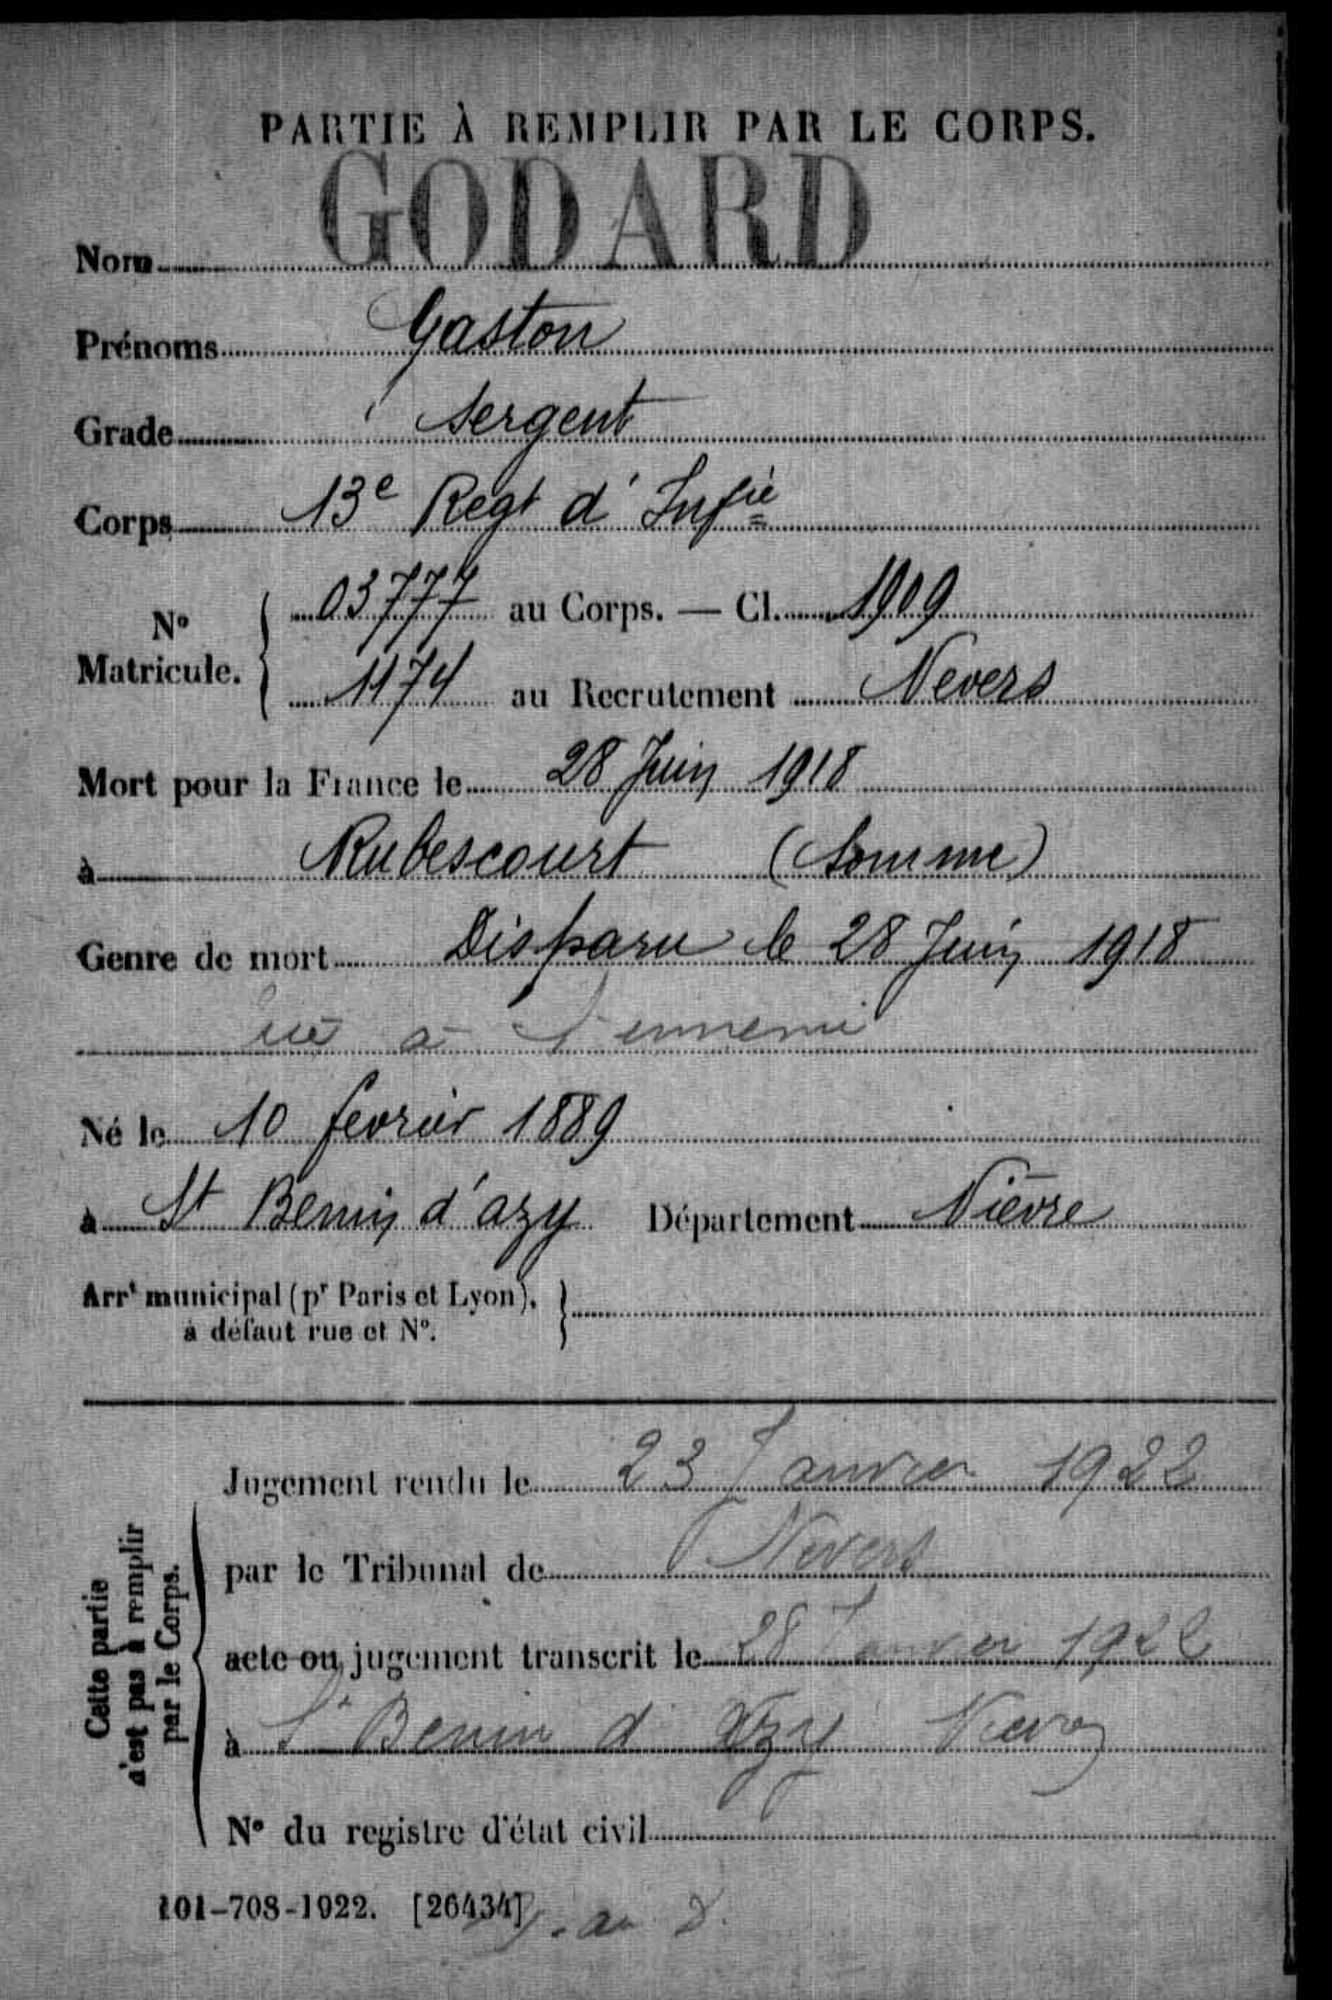 PARTIE À REMPLIR PAR LE CORPS.
Nom GODARD
Prénoms Gaston
Grade Sergent
Corps 13e Regt d' Infie
No Matricule. { 03777 au Corps. — Cl. 1909
1174 au Recrutement Nevers
Mort pour la France le 28 Juin 1918
à Rubescourt (Somme)
Genre de mort Disparu le 28 Juin 1918
tué à l'ennemi
Né le 10 fevrier 1889
à St Benin d'azy Département Nièvre
Arrt municipal (pr Paris et Lyon), }
à défaut rue et No.
Cette partie
n'est pas à remplir
par le Corps.
Jugement rendu le 23 Janvier 1922
par le Tribunal de Nevers
acte ou jugement transcrit le 28 Janvier 1922
à St Benin d' Azy Nievre
No du registre d'état civil
101-708-1922. [26434]